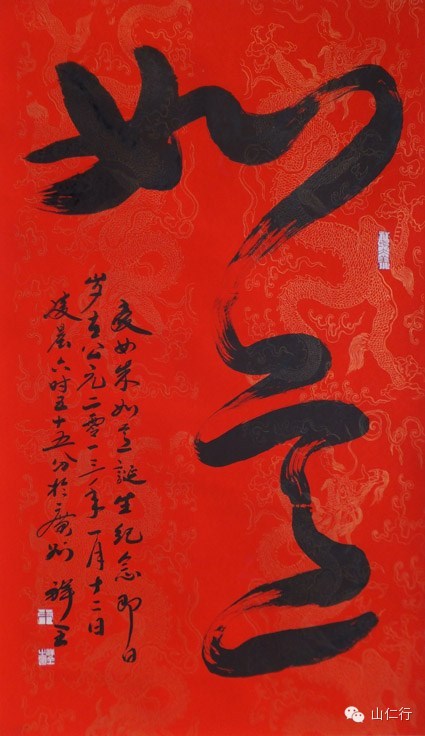 如意
爱女朱如意誕生纪念即日
岁在公元二零一三年一月十二日
凌晨六时五十五分於廣州
山仁行